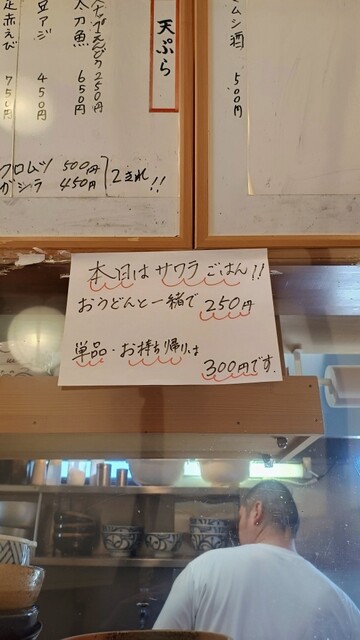 ムシ酒 500円
天ぷら
スナップえんどう 250円
太刀魚 650円
豆アジ 450円
足赤えび 750円
クロムツ 500円
ガシラ 450円
2きれ!!
本日は サワラ ごはん!!
おうどんと一緒で 250円
単品・お持ち帰りは
300円です。